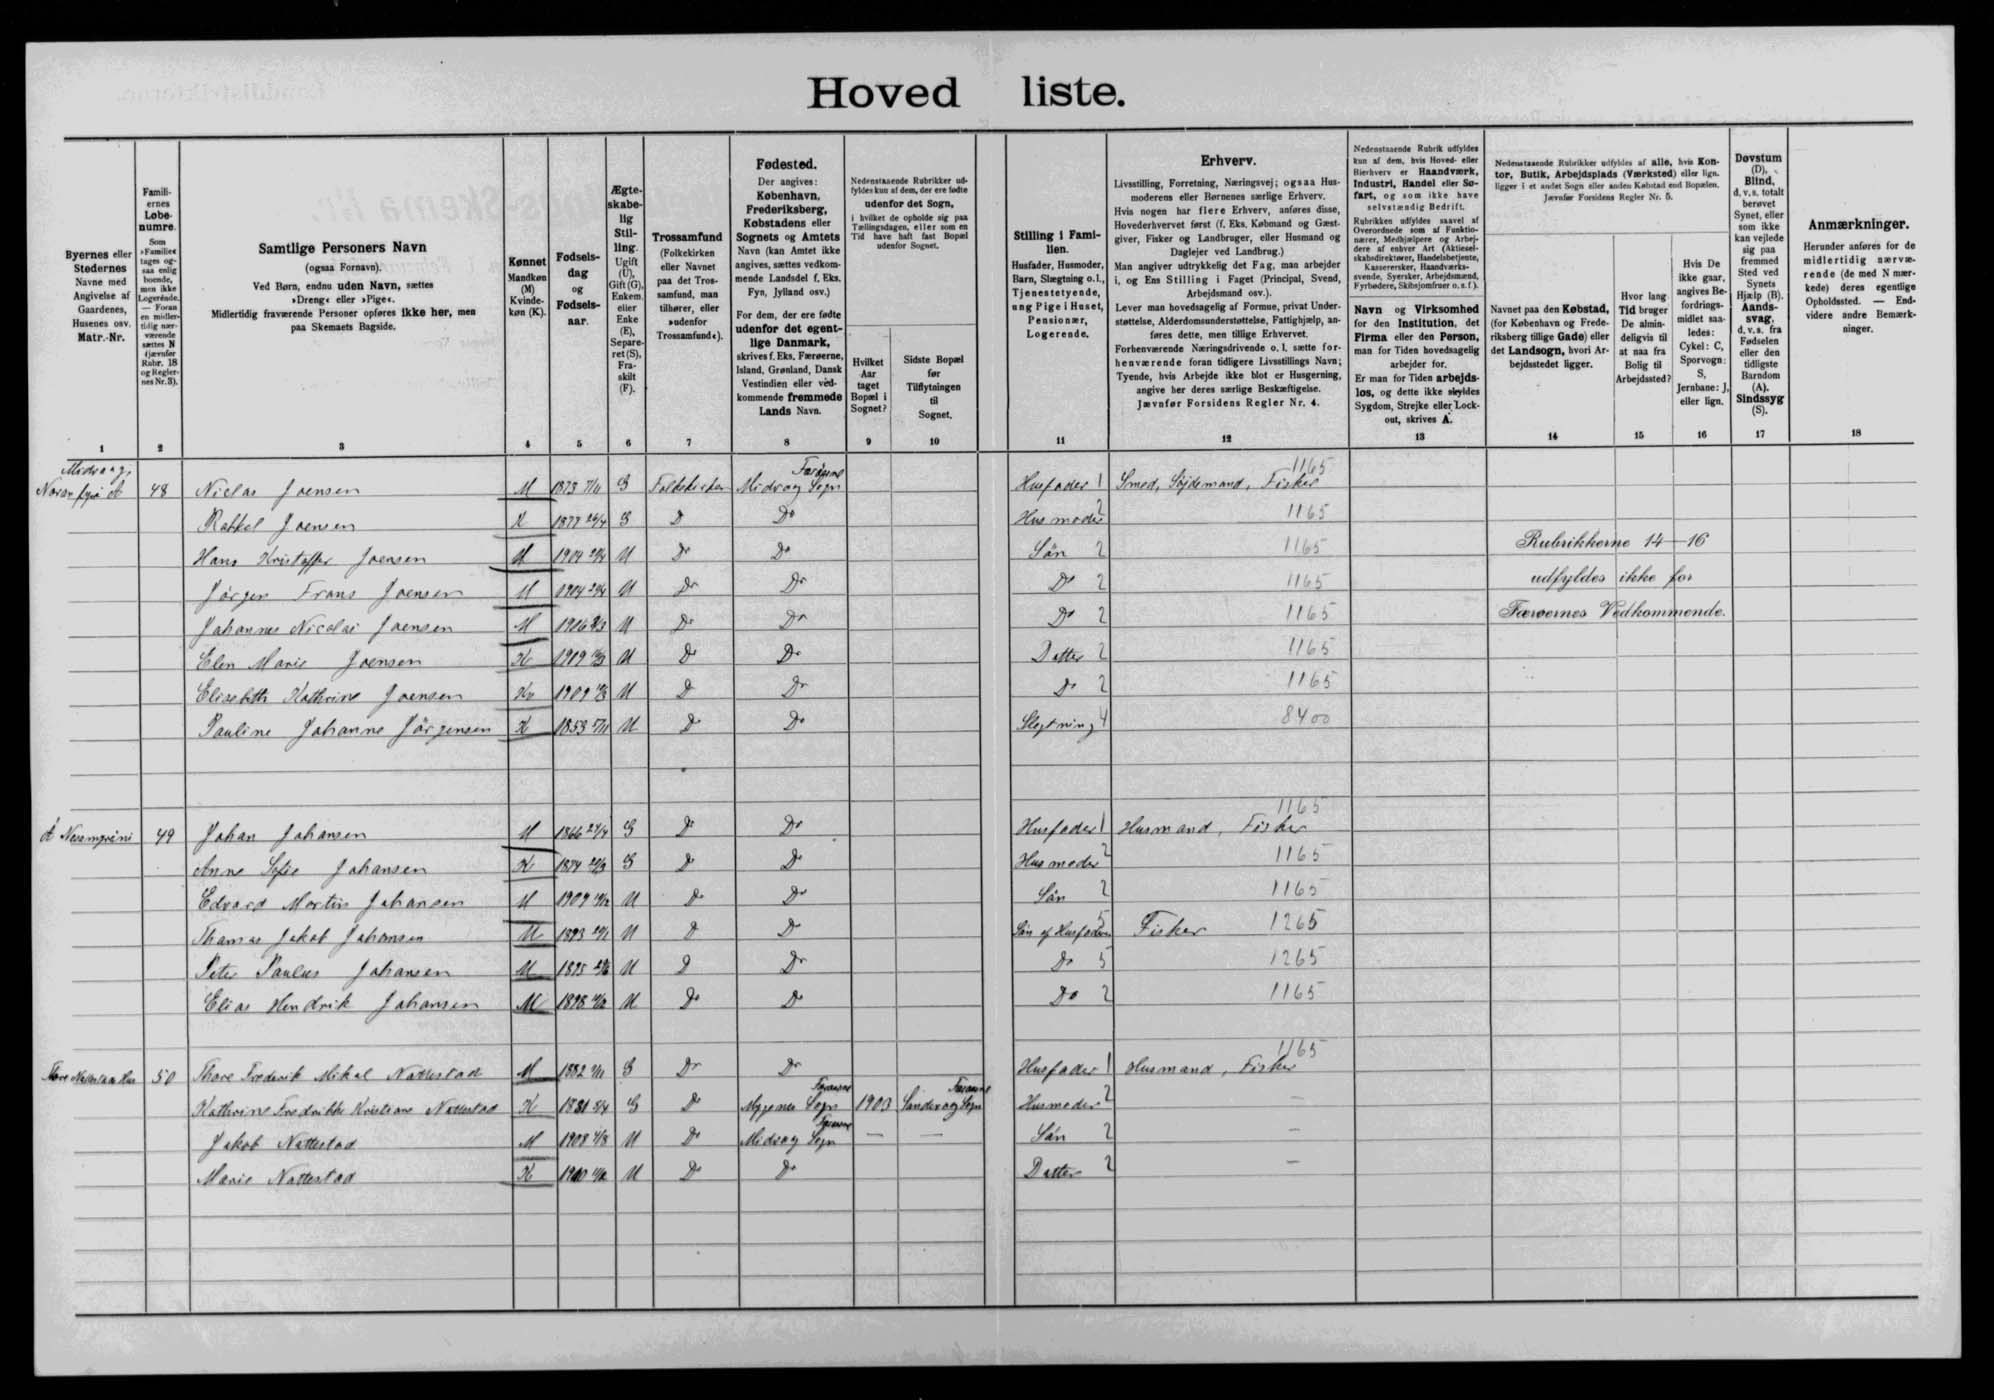 Hoved liste.
Byernes eller Stedernes Navne med Angivelse af Gaardenes, Husenes osv. Matr.-Nr.
Familiernes Løbenumre.
Som »Familie« tages ogsaa enlig boende, men ikke Logerende. — Foran en midlertidig nærværende sættes N (jævnfør Rubr. 18 og Regler­nes Nr. 3).
Samtlige Personers Navn
(ogsaa Fornavn).
Ved Børn, endnu uden Navn, sættes
»Dreng« eller »Pige«.
Midlertidig fraværende Personer opføres ikke her, men
paa Skemaets Bagside.
Kønnet
Mandkøn (M) Kvindekøn (K).
Fødselsdag og Fødselsaar.
Ægteskabelig Stilling.
Ugift (U), Gift (G), Enkem. eller Enke (E), Separeret (S), Fraskilt (F).
Trossamfund
(Folkekirken eller Navnet paa det Trossamfund, man tilhører, eller »udenfor Trossamfund«).
Fødested.
Der angives:
København, Frederiksberg, Købstadens eller Sognets og Amtets Navn (kan Amtet ikke angives, sættes vedkommende Landsdel f. Eks. Fyn, Jylland osv.)
For dem, der ere fødte udenfor det egentlige Danmark, skrives f. Eks. Færøerne, Island, Grønland, Dansk Vestindien eller vedkommende fremmede Lands Navn.
Nedenstaaende Rubrikker udfyldes kun af dem, der ere fødte udenfor det Sogn,
i hvilket de opholde sig paa Tællingsdagen, eller som en Tid have haft fast Bopæl udenfor Sognet.
Hvilket Aar taget Bopæl i Sognet?
Sidste Bopæl før Tilflytningen til Sognet.
Stilling i Familien.
Husfader, Husmoder, Barn, Slægtning o. l., Tjenestetyende, ung Pige i Huset, Pensionær, Logerende.
Erhverv.
Livsstilling, Forretning, Næringsvej; ogsaa Husmoderens eller Børnenes særlige Erhverv.
Hvis nogen har flere Erhverv, anføres disse, Hovederhvervet først (f. Eks. Købmand og Gæstgiver, Fisker og Landbruger, eller Husmand og Daglejer ved Landbrug.)
Man angiver udtrykkelig det Fag, man arbejder i, og Ens Stilling i Faget (Principal, Svend, Arbejdsmand osv.).
Lever man hovedsagelig af Formue, privat Understøttelse, Alderdomsunderstøttelse, Fattighjælp, anføres dette, men tillige Erhvervet.
Forhenværende Næringsdrivende o. l. sætte forhenværende foran tidligere Livsstillings Navn; Tyende, hvis Arbejde ikke blot er Husgerning, angive her deres særlige Beskæftigelse.
Jævnfør Forsidens Regler Nr. 4.
Nedenstaaende Rubrik udfyldes kun af dem, hvis Hoved- eller Bierhverv er Haandværk, Industri, Handel eller Søfart, og som ikke have selvstændig Bedrift.
Rubrikken udfyldes saavel af Overordnede som af Funktionærer, Medhjælpere og Arbejdere af enhver Art (Aktieselskabsdirektører, Handelsbetjente, Kasserersker, Haandværkssvende, Syersker, Arbejdsmænd, Fyrbødere, Skibsjomfruer o. s. f.).
Navn og Virksomhed for den Institution, det Firma eller den Person, man for Tiden hovedsagelig arbejder for.
Er man for Tiden arbejdsløs, og dette ikke skyldes Sygdom, Strejke eller Lockout, skrives A.
Nedenstaaende Rubrikker udfyldes af alle, hvis Kontor, Butik, Arbejdsplads (Værksted) eller lign. ligger i et andet Sogn eller anden Købstad end Bopælen.
Jævnfør Forsidens Regler Nr. 5.
Navnet paa den Købstad, (for København og Frederiksberg tillige Gade) eller det Landsogn, hvori Arbejdsstedet ligger.
Hvor lang Tid bruger De almindeligvis til at naa fra Bolig til Arbejdssted?
Hvis De ikke gaar, angives Befordringsmidlet saaledes: Cykel: C, Sporvogn: S, Jernbane: J, eller lign.
Døvstum (D), Blind, d. v. s. totalt berøvet Synet, eller som ikke kan vejlede sig paa fremmed Sted ved Synets Hjælp (B). Aandssvag, d. v. s. fra Fødselen eller den tidligste Barndom (A). Sindssyg (S).
Anmærkninger.
Herunder anføres for de midlertidig nærværende (de med N mærkede) deres egentlige Opholdssted. — Endvidere andre Bemærkninger.
1 2 3 4 5 6 7 8 9 10 11 12 13 14 15 16 17 18
Færøerne 1165
48 Niclas Joensen M 1873 G Folkekirken Midvaag Sogn Husfader 1 Smed, Fisker
Rakkel Joensen K 1877 G D Do Husmoder 2 1165
Hans Kristoffer Joensen M 1904 U Do Do Søn 2 1165 Rubrikkerne 14—16
Jørgen Frans Joensen M 1904 U Do Do Do 2 1165 udfyldes ikke for
Johannes Nicolai Joensen M 1906 U Do Do Do 2 1165 Færøernes Vedkommende.
Elen Marie Joensen K 1909 U Do Do Datter 2 1165
Elisabeth Kathrine Joensen K 1909 U D Do Do 2 1165
Pauline Johanne Jørgensen K 1853 U Do Do Slegtning 4 8400
1165
49 Johan Johansen M 1866 G Do Do Husfader 1 Husmand, Fisker
Anne Sofie Johansen K 1874 G Do Do Husmoder 2 1165
Edvard Morten Johansen M 1909 U Do Do Søn 2 1165
Thomas Jakob Johansen M 1893 U D Do Søn af Husfader 5 Fisker 1265
Peter Paulus Johansen M 1895 U D Do Do 5 1265
Elias Hendrik Johansen M 1898 U Do Do Do 2 1165
1165
50 Thore Frederik Mikal Nattestad M 1882 G Do Do Husfader 1 Husmand, Fisker
Færøerne Færøerne
Kathrine Fredrikke Kristiane Nattestad K 1881 G D Mygenes Sogn 1903 Sandevaag Sogn Husmoder 2 —
Færøerne
Jakob Nattestad M 1908 U Do Midvaag Sogn — — Søn 2 —
Marie Nattestad K 1910 U Do Do Datter 2 —